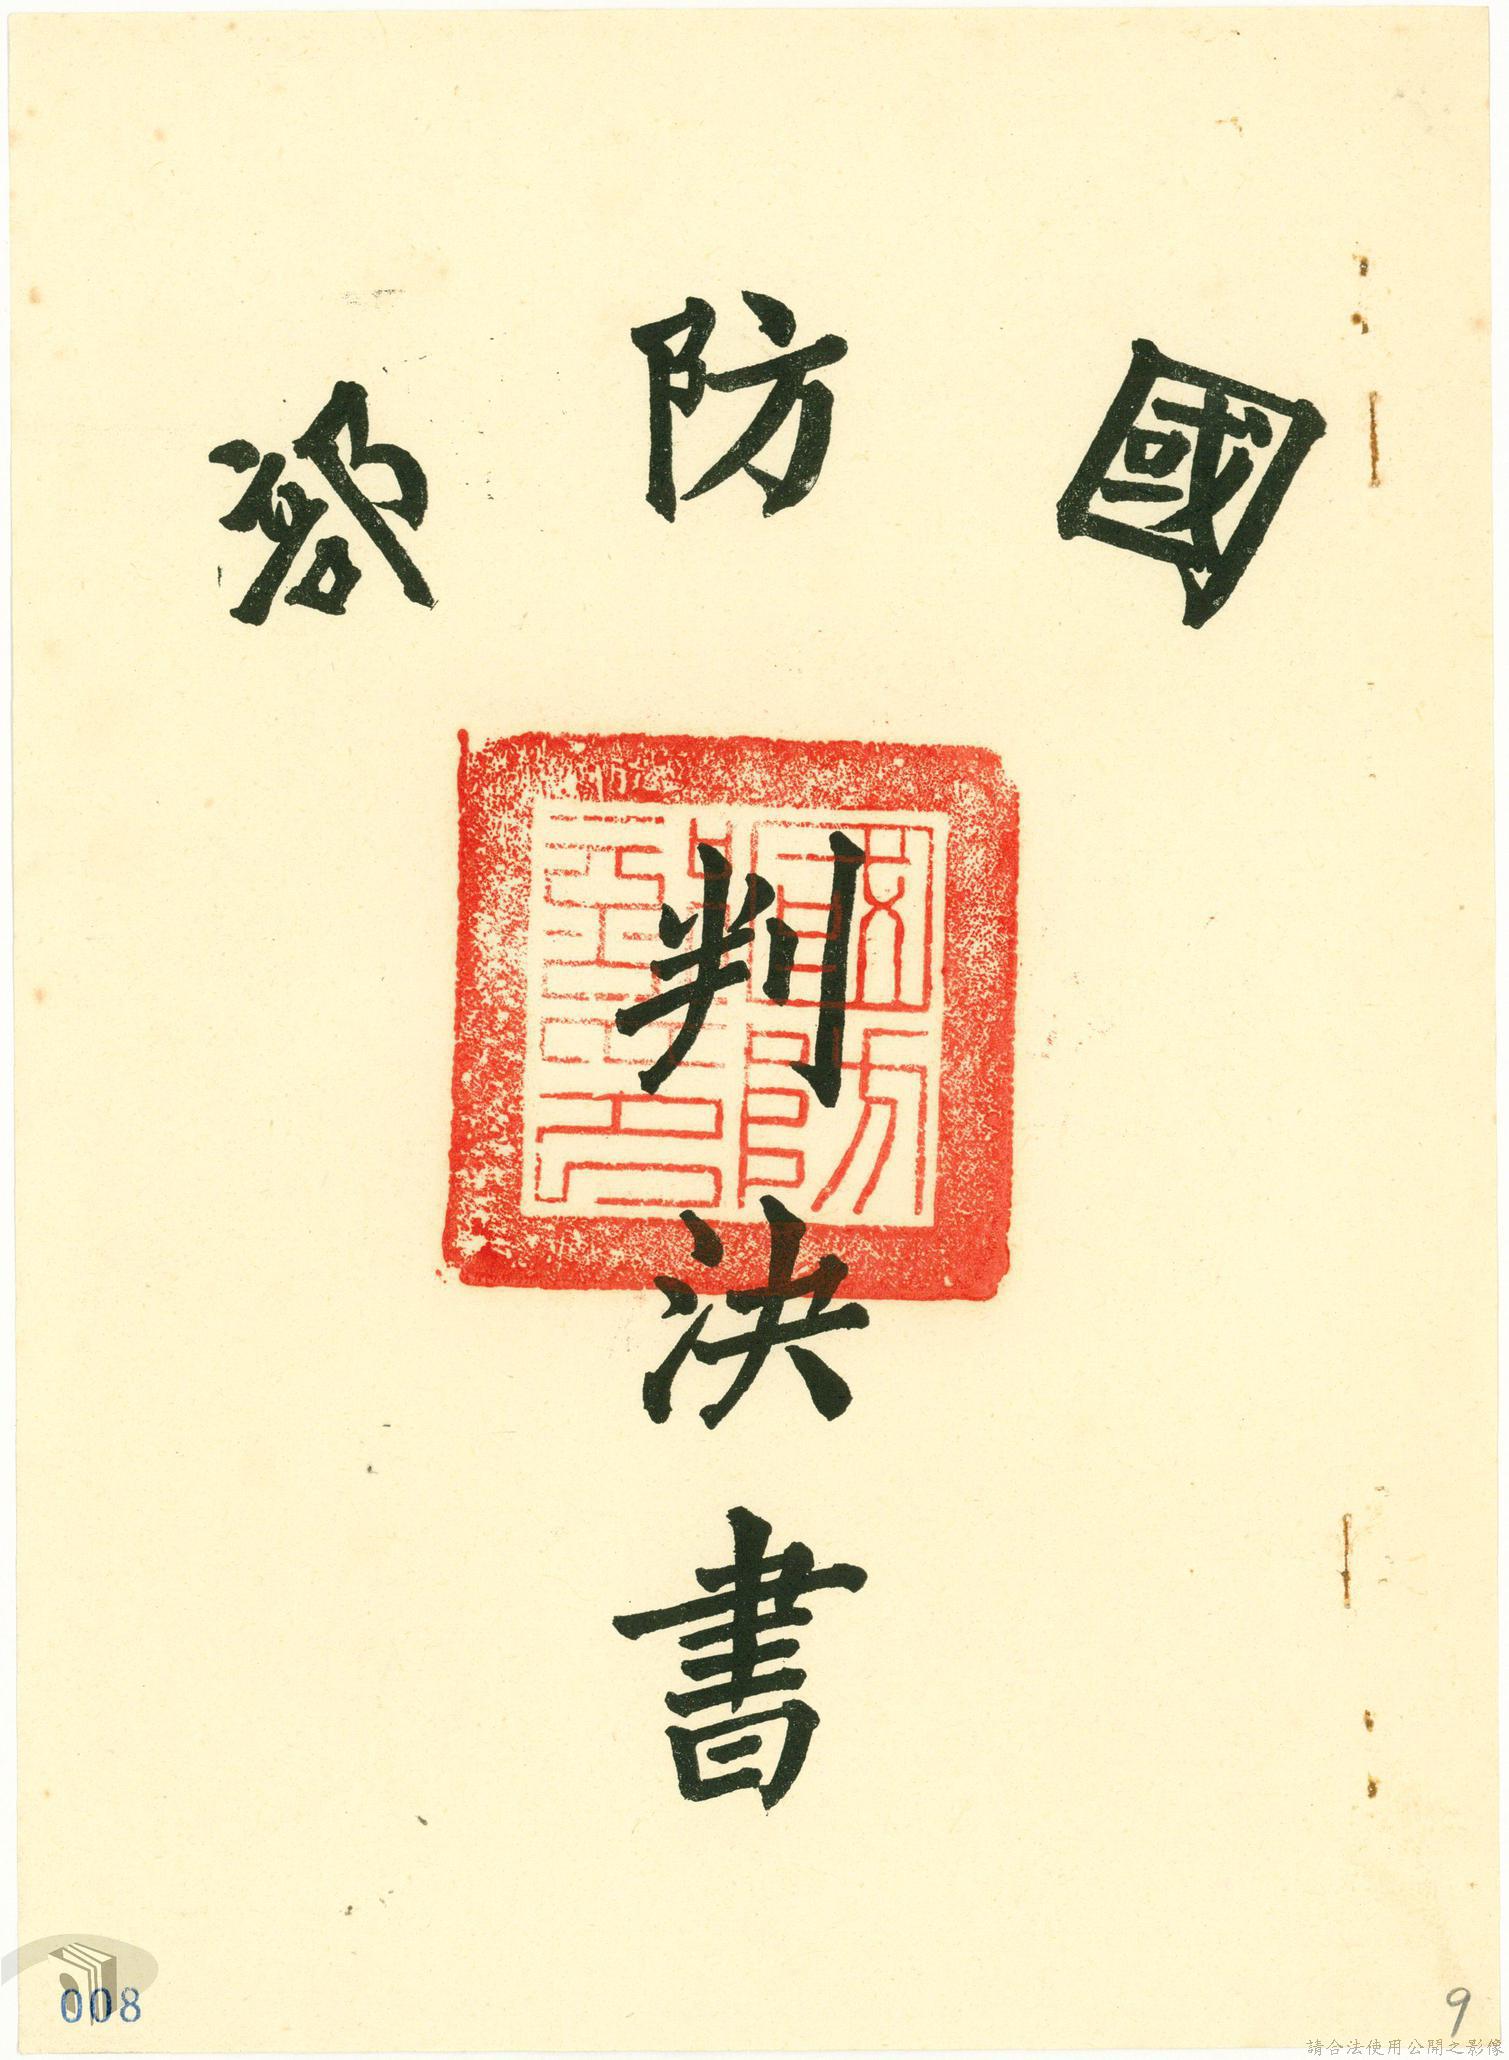 國防部
判決書
008
9
請合法使用公開之影像